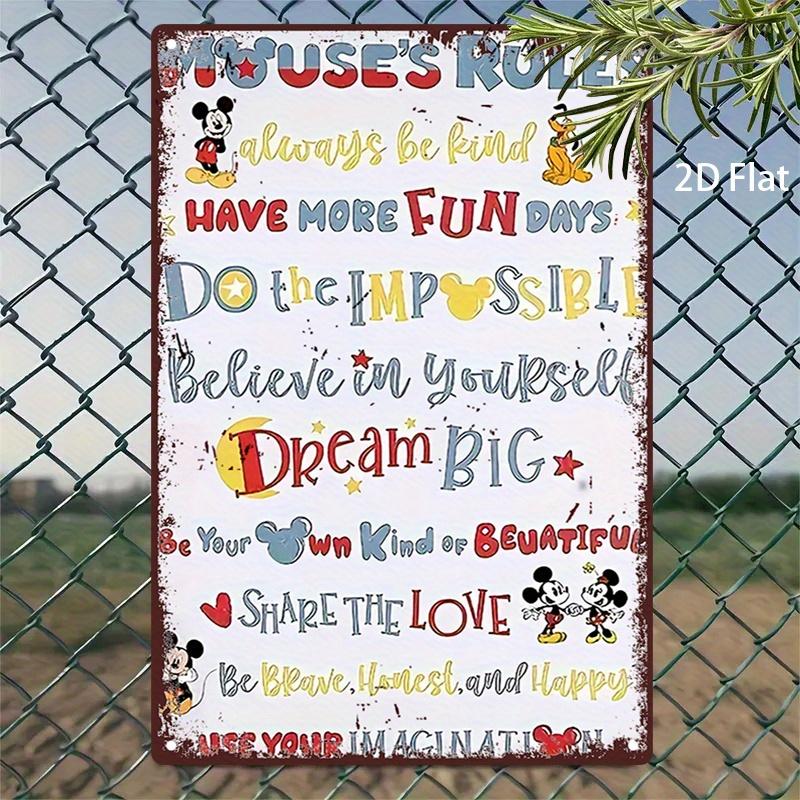 MOUSE'S RULES
always be kind
2D Flat
HAVE MORE FUN DAYS
DO the IMPOSSIBLE
Believe in YourSelf
DReam BIG
Be Your Own Kind of BEUATIFUL
SHARE THE LOVE
Be BRave, Honest, and Happy
USE YOUR IMAGINATION